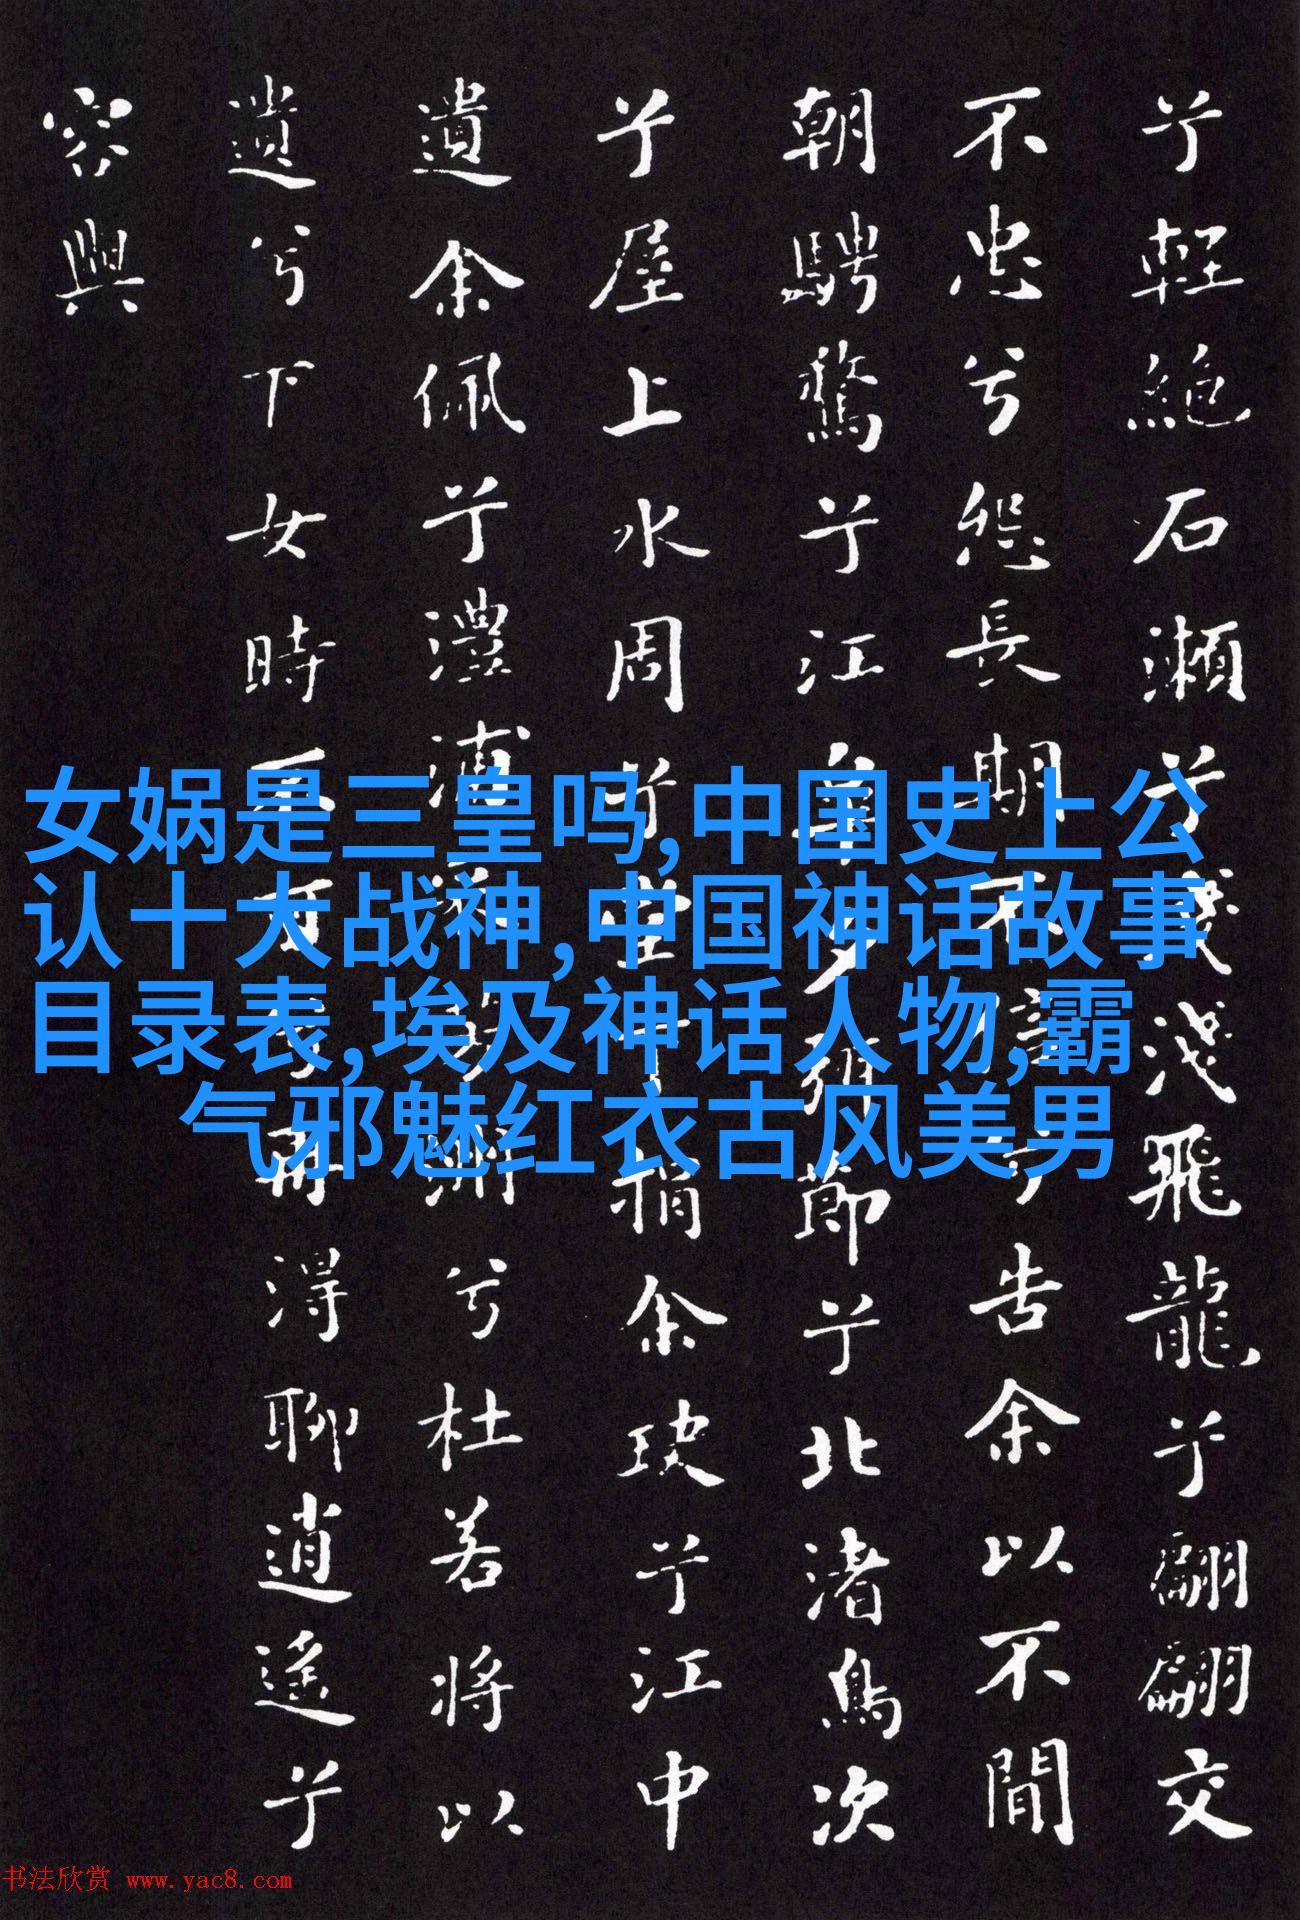 兮輕絕石瀨兮淺淺飛龍兮翩翩交
不忠兮怨長期不信兮告余以不間
朝騁騖兮江皋夕弭節兮北渚鳥次
兮屋上水周兮堂下捐余玦兮江中
遺余佩兮澧浦采芳洲兮杜若將以
遺兮下女時不可兮再得聊逍遙兮
容與
女娲是三皇吗,中国史上公
认十大战神,中国神话故事
目录表,埃及神话人物,霸
气邪魅红衣古风美男
书法欣赏 www.yac8.com